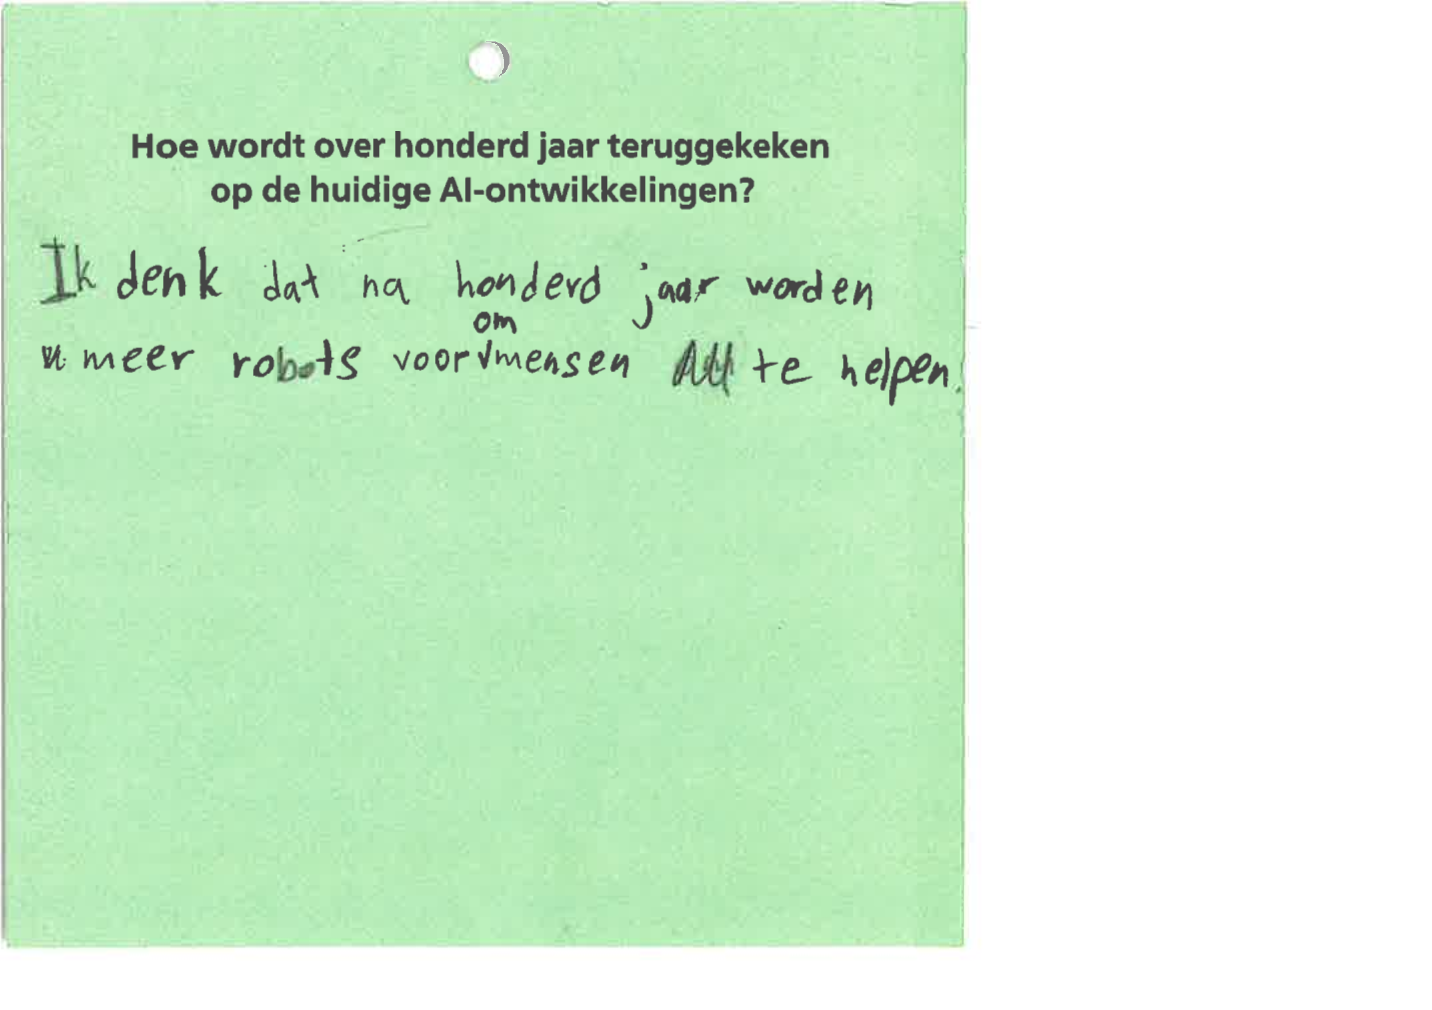 Hoe wordt over honderd jaar teruggekeken
op de huidige AI-ontwikkelingen?
Ik denk dat na honderd jaar worden
meer robots voor om mensen te helpen.